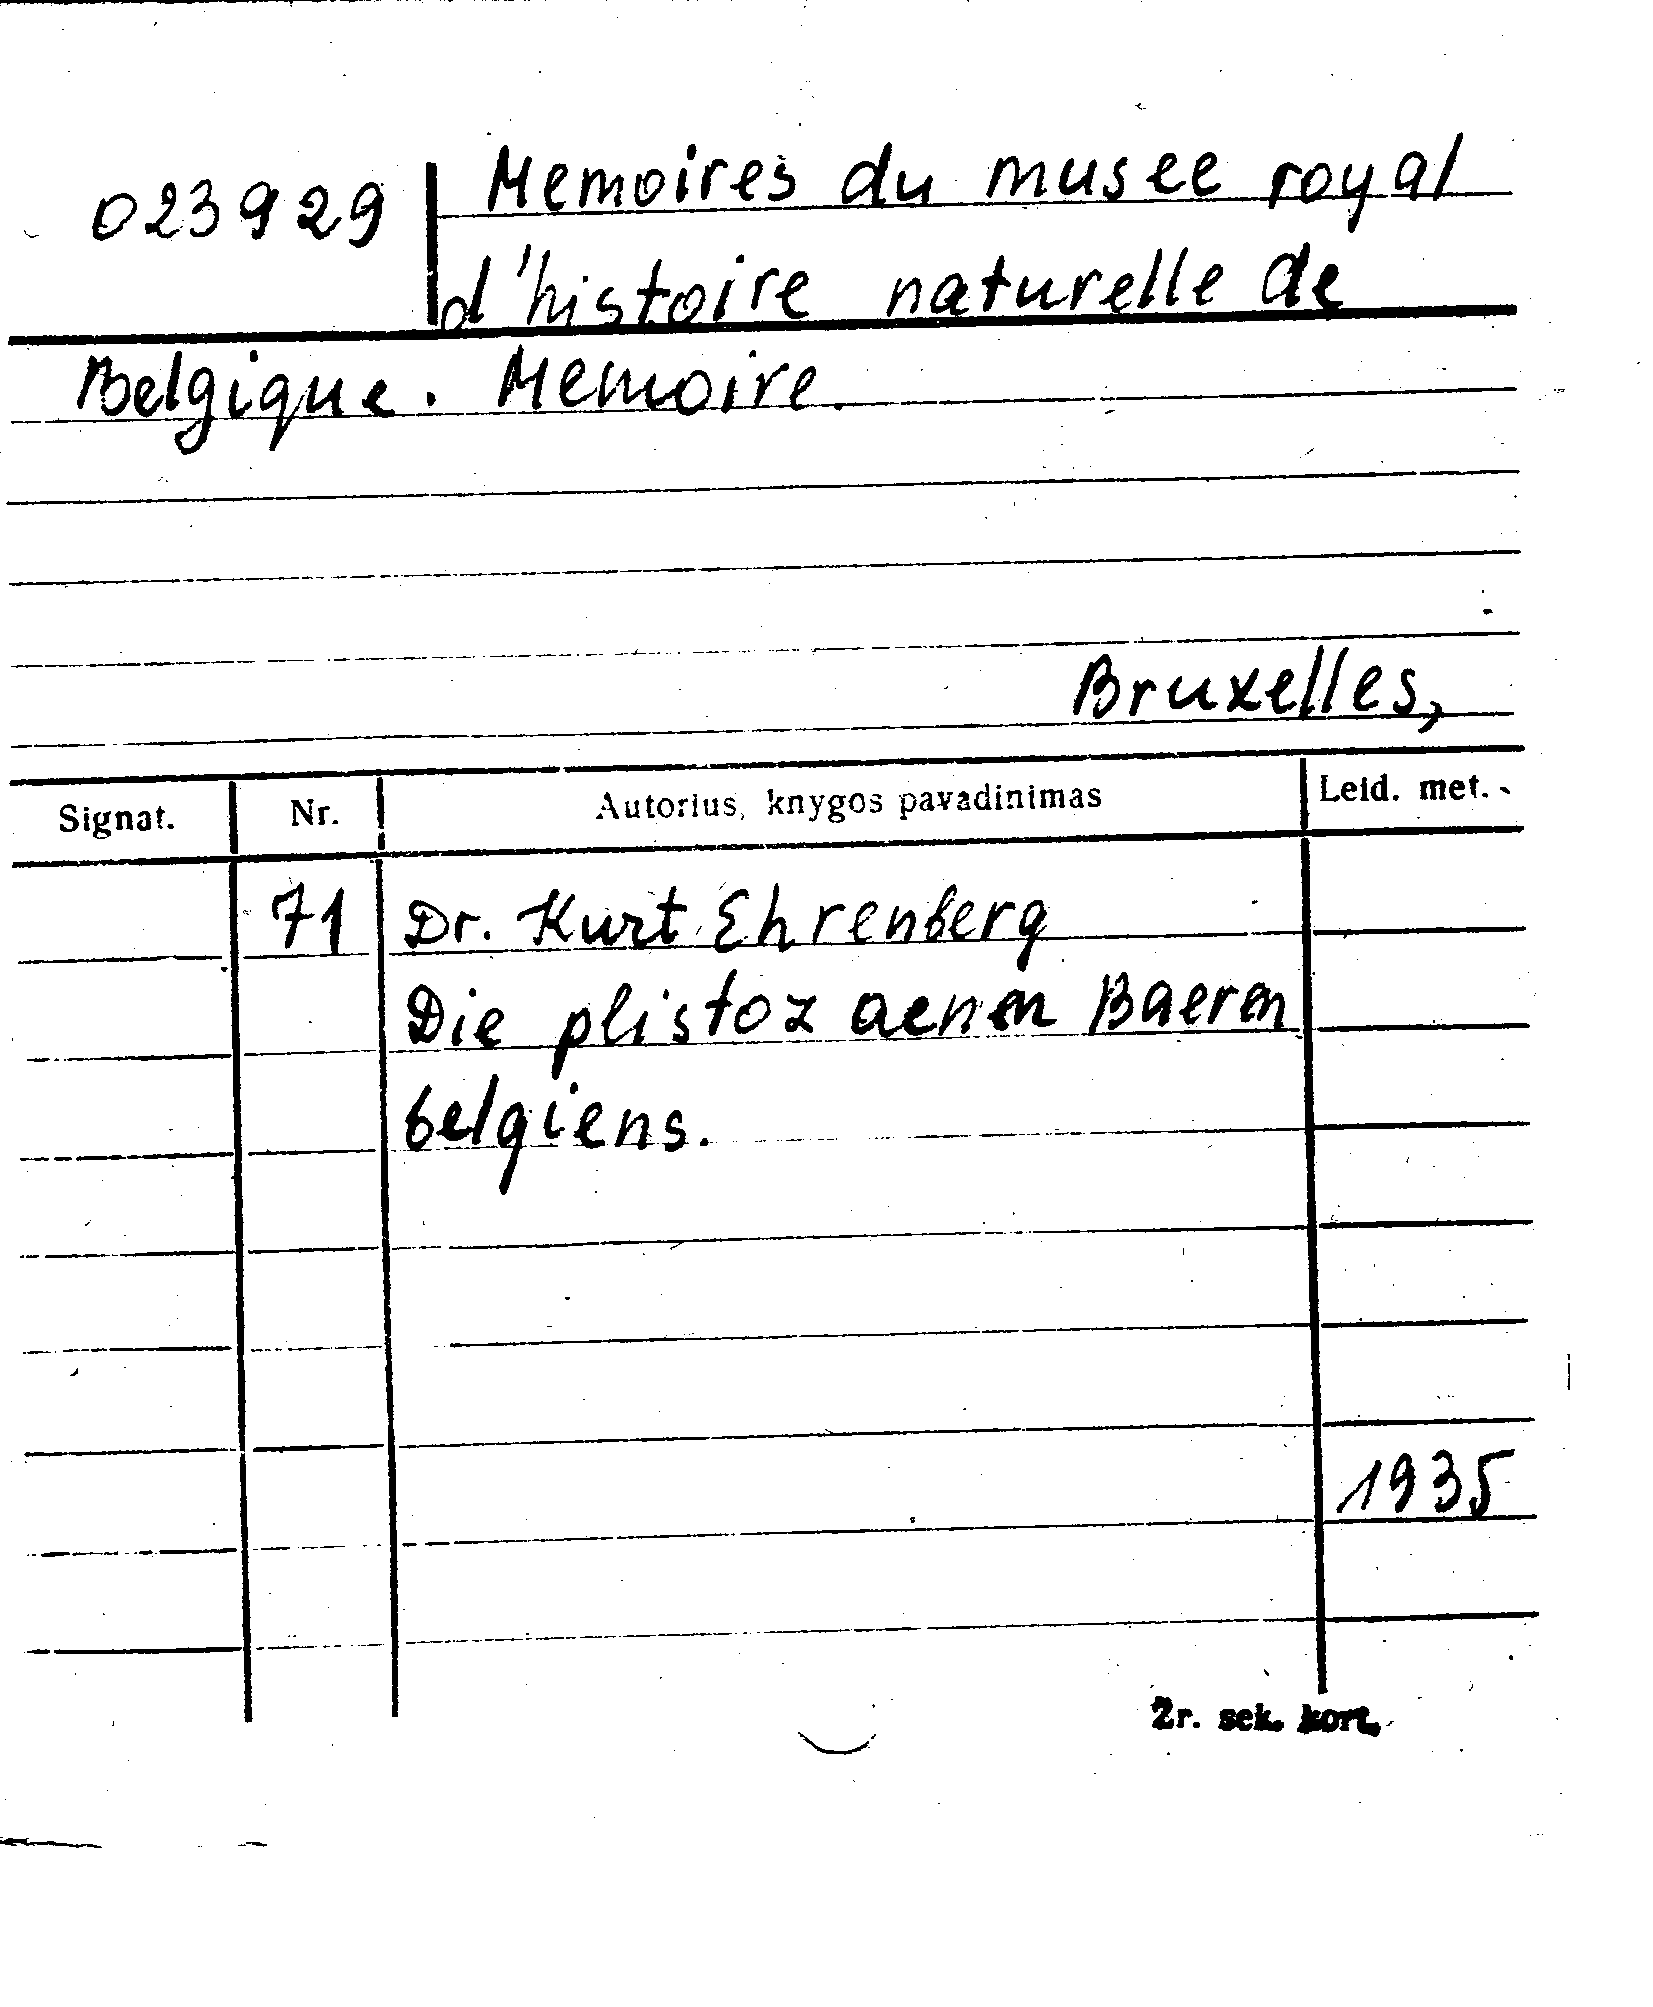 023929 Memoires du musee royal
d'histoire naturelle de
Belgique. Memoire.
Bruxelles,
Signat. Nr. Autorius, knygos pavadinimas Leid. met.
71 Dr. Kurt Ehrenberg
Die plistoz aenen Baeren
belgiens.
1935
2r. sek. kort.